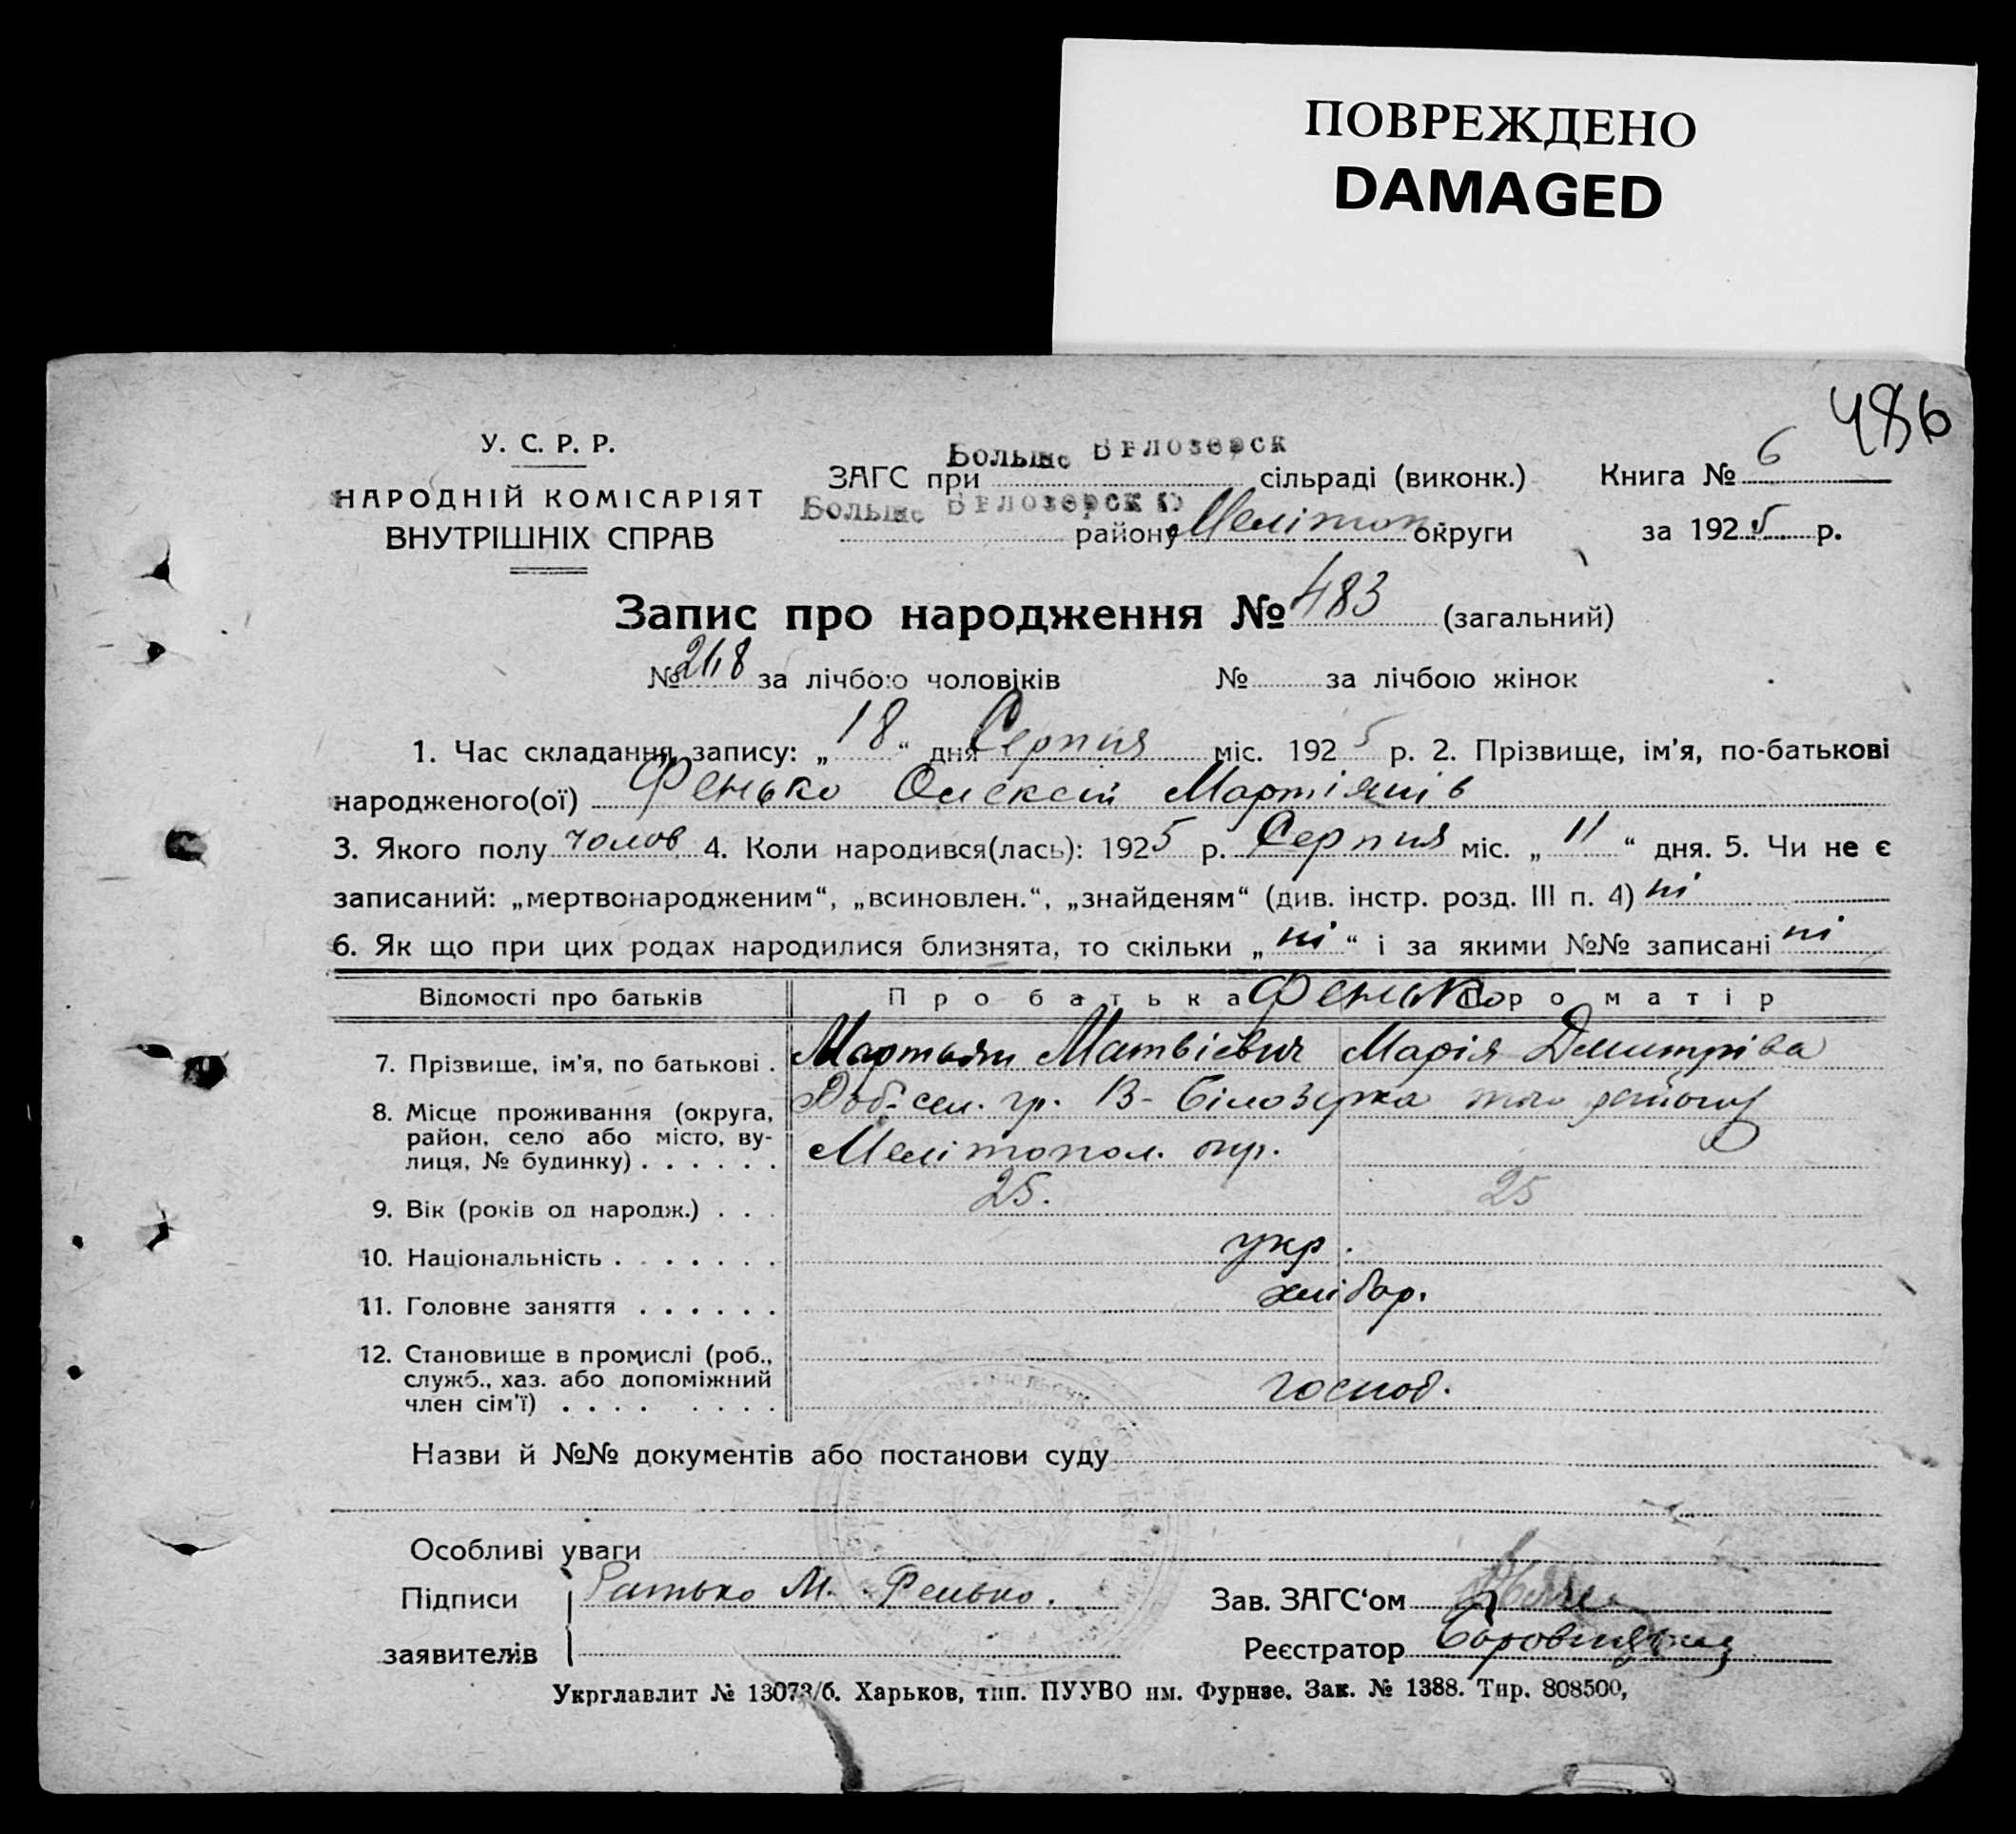 ПОВРЕЖДЕНО
DAMAGED
486
У. С. Р. Р.
НАРОДНІЙ КОМІСАРІЯТ
ВНУТРІШНІХ СПРАВ
Больше Бѣлозерск
ЗАГС при сільраді (виконк.) Книга № 6
Больше Бѣлозерск району Мелітоп. округи за 1925 р.
Запис про народження № 483 (загальний)
№ 248 за лічбою чоловіків № за лічбою жінок
1. Час складання запису: „18“ дня Серпня міс. 1925 р. 2. Прізвище, ім'я, по-батькові
народженого(ої) Фенько Олексій Мартіянів
3. Якого полу чолов. 4. Коли народився(лась): 1925 р. Серпня міс. „11“ дня. 5. Чи не є
записаний: „мертвонародженим“, „всиновлен.“, „знайденям“ (див. інстр. розд. III п. 4) ні
6. Як що при цих родах народилися близнята, то скільки „ні“ і за якими №№ записані ні
Відомості про батьків Про батька Фенько Про матір
7. Прізвище, ім'я, по батькові . Мартьян Матвієвич Марія Дмитрівна
8. Місце проживання (округа, сел. гр. В-Білозерка того району
район, село або місто, ву-
лиця, № будинку) . . . . . . Мелітопол. окр.
9. Вік (років од народж.) . . . 25. 25
10. Національність . . . . . . . укр.
11. Головне заняття . . . . . . хлібор.
12. Становище в промислі (роб.,
служб., хаз. або допоміжний
член сім'ї) . . . . . . . . господ.
Назви й №№ документів або постанови суду
Особливі уваги
Підписи Батько М. Фенько. Зав. ЗАГС‘ом
заявителів Реєстратор
Укрглавлит № 13073/б. Харьков, тип. ПУУВО им. Фурнзе. Зак. № 1388. Тир. 808500,